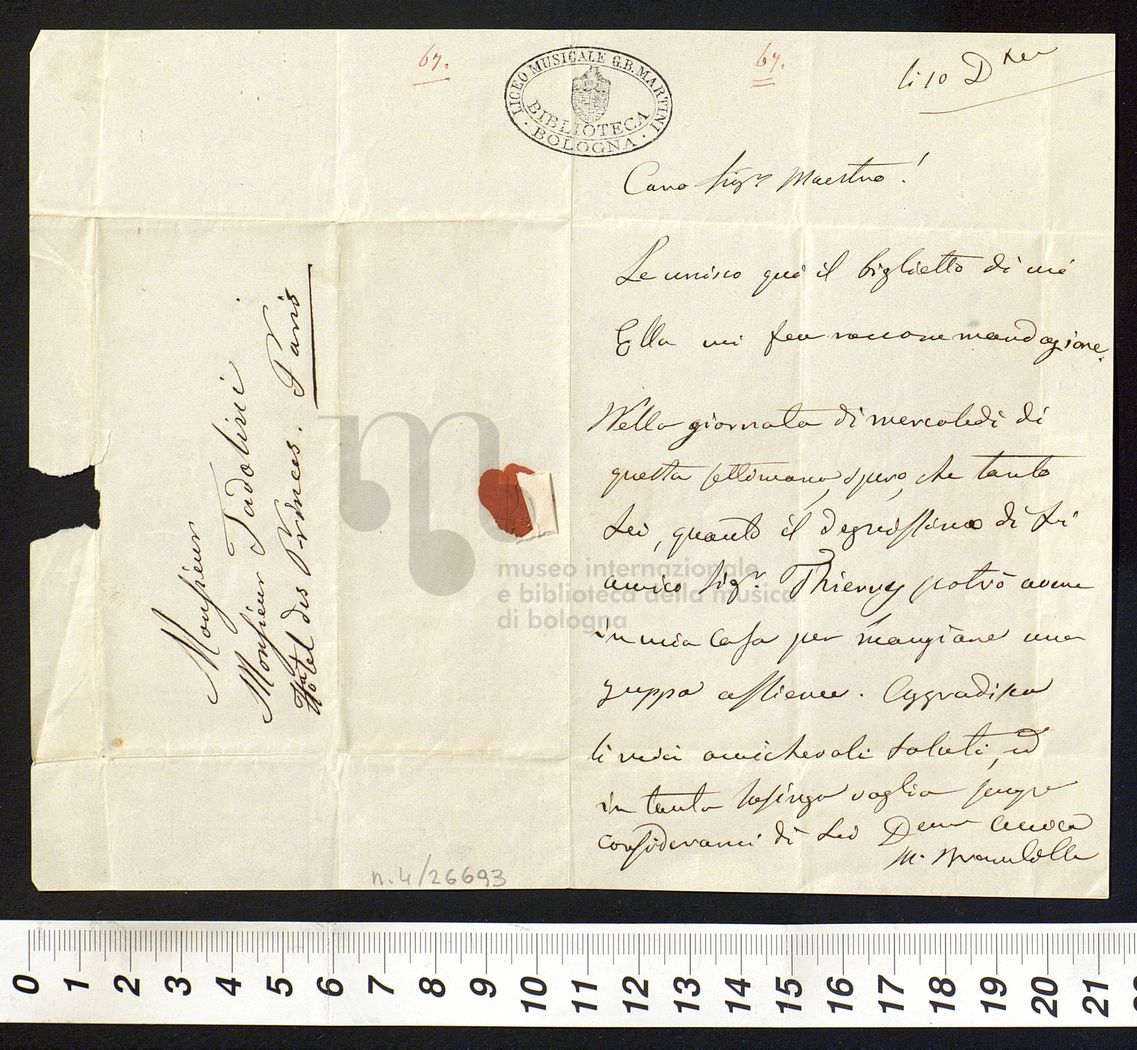 67.
67.
LICEO MUSICALE G.B. MARTINI
BIBLIOTECA
BOLOGNA
li 10 D
Caro Sigr Maestro!
Le unisco quì il biglietto di cui
Ella mi fea raccomandazione.
Nella giornata di mercoledì di
questa settimana, spero, che tanto
Lei, quanto il degnissimo di Lei
amico Sigr. Thierry potrò avere
in mia casa per mangiare una
zuppa assieme. Aggradisca
li miei amichevoli saluti, ed
in tanto lusinga voglia sempre
considerarmi di Lei amica
M. Brambilla
Monsieur
Monsieur Tadolini
Hotel des Princes. Paris
n. 4/26693
museo internazionale
e biblioteca della musica
di bologna
0 1 2 3 4 5 6 7 8 9 10 11 12 13 14 15 16 17 18 19 20 21